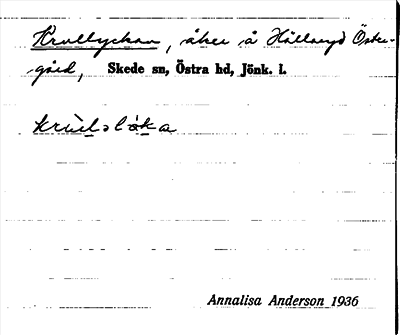 Krullyckan, åker å Hållanyd Öster-
gård, Skede sn, Östra hd, Jönk. l.
Annalisa Anderson 1936